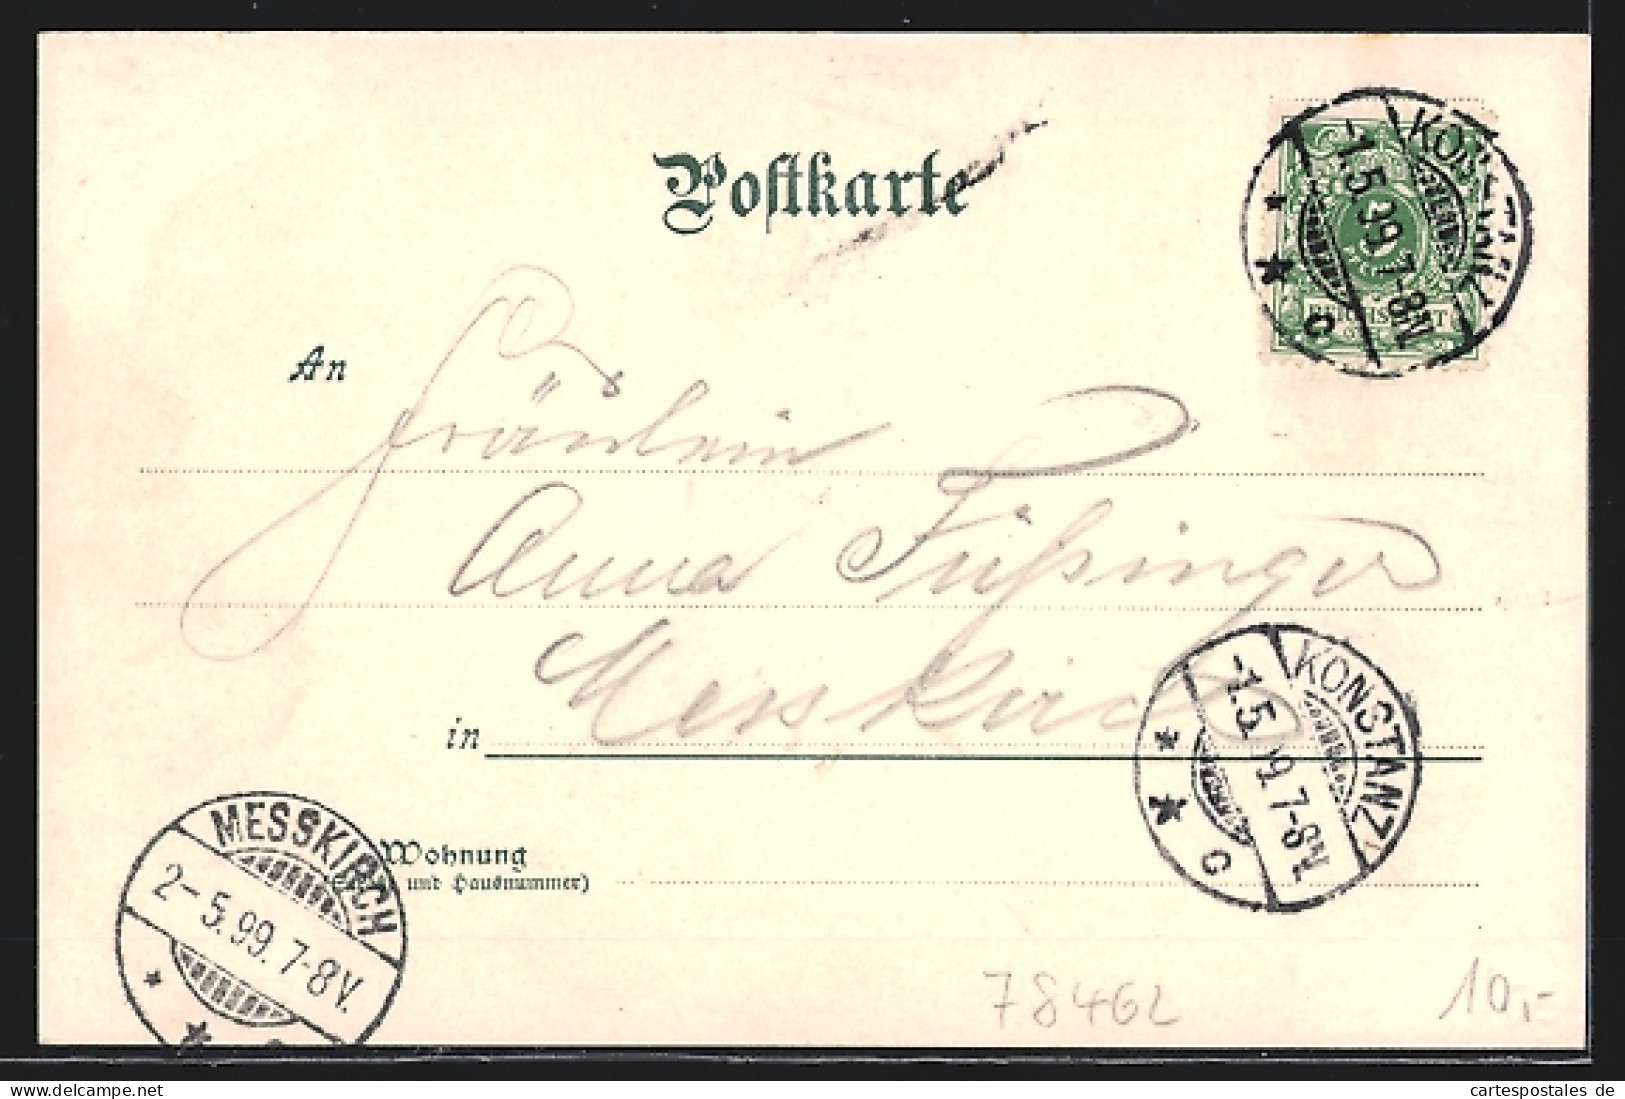 Postkarte
KONSTANZ
-1.5.99.7-8N.
c
5
REICHSPOST
An
Fräulein
Anna Füßinger
in Messkirch
KONSTANZ
-1.5.99.7-8N.
c
MESSKIRCH
2-5.99.7-8V.
Wohnung
und Hausnummer)
78462
10,-
Mes29628
cartespostales de